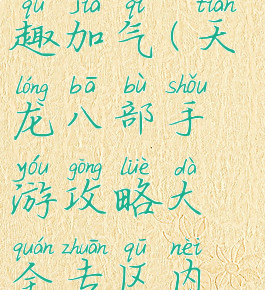 qù jiā qì tiān
趣加气(天
lóng bā bù shǒu
龙八部手
yóu gōng lüè dà
游攻略大
quán zhuān qū nèi
全专区内